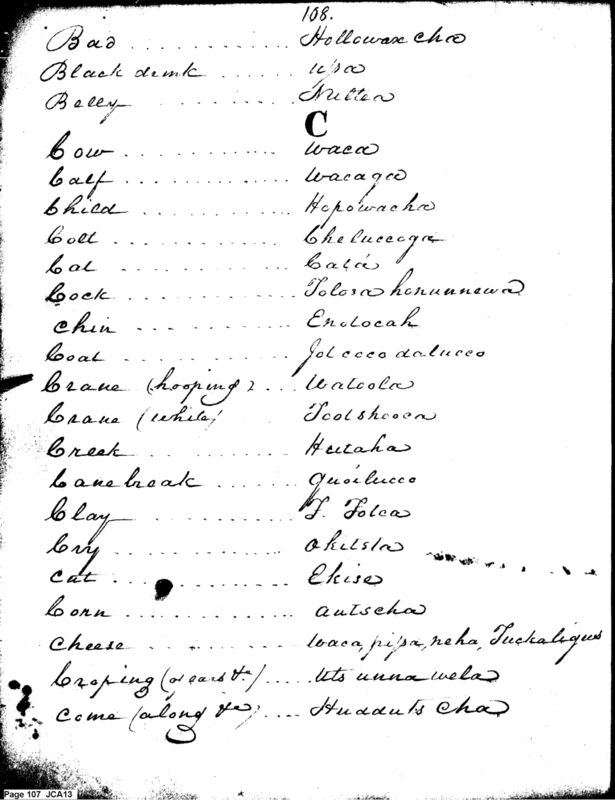 108.
Bad ............ Hollowaxcha
Black drink ......... upa
Belly ............ Nultea
C
Cow ............ Waca
Calf ............ Wacagea
Child ............ Hopowacha
Colt ............ Cheluccoga
Cat ............ Catá
Cock ............ Tolosa honunnewa
Chin ............ Enolocah
Coat ............
Crane (hooping) ... Watoola
Crane (white)
Creek ............ Hutaha
Canebreak ........ quoilucco
Clay ............ T. Tolca
Cry ............ Okilsla
Cat ............ Ekise
Corn ............ autscha
Cheese ............ Waca, pipa, neha, Tuckaligus
Croping (of ears &c) ... Uts unna wela
Come (along &c) .... Hudduts Cha
Page 107 JCA13